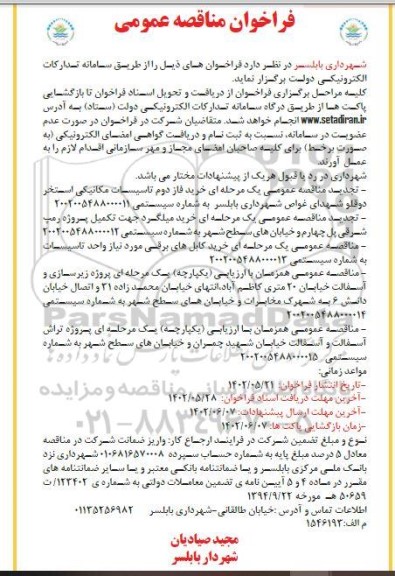 فراخوان مناقصه عمومی
شهرداری بابلسر در نظر دارد فراخوان های ذیل را از طریق سامانه تدارکات
الکترونیکی دولت برگزار نماید.
کلیه مراحل برگزاری فراخوان از دریافت و تحویل اسناد فراخوان تا بازگشایی
پاکت ها از طریق درگاه سامانه تدارکات الکترونیکی دولت (ستاد) به آدرس
www.setadiran.ir انجام خواهد شد. متقاضیان شرکت در فراخوان در صورت عدم
عضویت در سامانه، نسبت به ثبت نام و دریافت گواهی امضای الکترونیکی (به
صورت برخط) برای کلیه صاحبان امضای مجاز و مهر سازمانی اقدام لازم را به
عمل آورند.
شهرداری در رد یا قبول هریک از پیشنهادات مختار می باشد.
- تجدید مناقصه عمومی یک مرحله ای خرید فاز دوم تاسیسات مکانیکی استخر
دوقلو شهدای غواص شهرداری بابلسر به شماره سیستمی ۲۰۰۲۰۰۵۴۸۸۰۰۰۰۱۱
- تجدید مناقصه عمومی یک مرحله ای خرید میلگرد جهت تکمیل پروژه رمپ
شرقی پل چهارم و خیابان های سطح شهر به شماره سیستمی ۲۰۰۲۰۰۵۴۸۸۰۰۰۰۱۲
- مناقصه عمومی یک مرحله ای خرید کابل های برقی مورد نیاز واحد تاسیسات
به شماره سیستمی ۲۰۰۲۰۰۵۴۸۸۰۰۰۰۱۳
- مناقصه عمومی همزمان با ارزیابی (یکپارچه) یک مرحله ای پروژه زیرسازی و
آسفالت خیابان ۲۰ متری کاظم آباد، انتهای خیابان محمدزاده ۲۱ و اتصال خیابان
دانش ۶ به شهرک مخابرات و خیابان های سطح شهر به شماره سیستمی
۲۰۰۲۰۰۵۴۸۸۰۰۰۰۱۴
- مناقصه عمومی همزمان با ارزیابی (یکپارچه) یک مرحله ای پروژه تراش
آسفالت و آسفالت خیابان شهید چمران و خیابان های سطح شهر به شماره
سیستمی ۲۰۰۲۰۰۵۴۸۸۰۰۰۰۱۵
مواعد زمانی:
-تاریخ انتشار فراخوان: ۱۴۰۲/۰۵/۲۱
-آخرین مهلت دریافت اسناد فراخوان: ۱۴۰۲/۰۵/۲۸
-آخرین مهلت ارسال پیشنهادات: ۱۴۰۲/۰۶/۰۷
-زمان بازگشایی پاکت ها: ۱۴۰۲/۰۶/۰۷
نوع و مبلغ تضمین شرکت در فرایند ارجاع کار: واریز ضمانت شرکت در مناقصه
معادل ۵ درصد مبلغ پایه به شماره حساب سپرده ۰۱۰۶۸۱۶۵۷۰۰۰۸ شهرداری نزد
بانک ملی مرکزی بابلسر و یا ضمانتنامه بانکی معتبر و یا سایر ضمانتنامه های
مقرر در ماده ۴ و ۵ آیین نامه ی تضمین معاملات دولتی به شماره ی ۱۲۳۴۰۲/ ت
۵۰۶۵۹ هـ مورخه ۱۳۹۴/۹/۲۲
اطلاعات تماس و آدرس: خیابان طالقانی-شهرداری بابلسر ۰۱۱۳۵۲۵۶۹۸۲
م الف: ۱۵۴۶۱۹۳
مجید صیادیان
شهردار بابلسر
ParsNamadData
۰۲۱-۸۸۳۴۹۶۷۰-۵